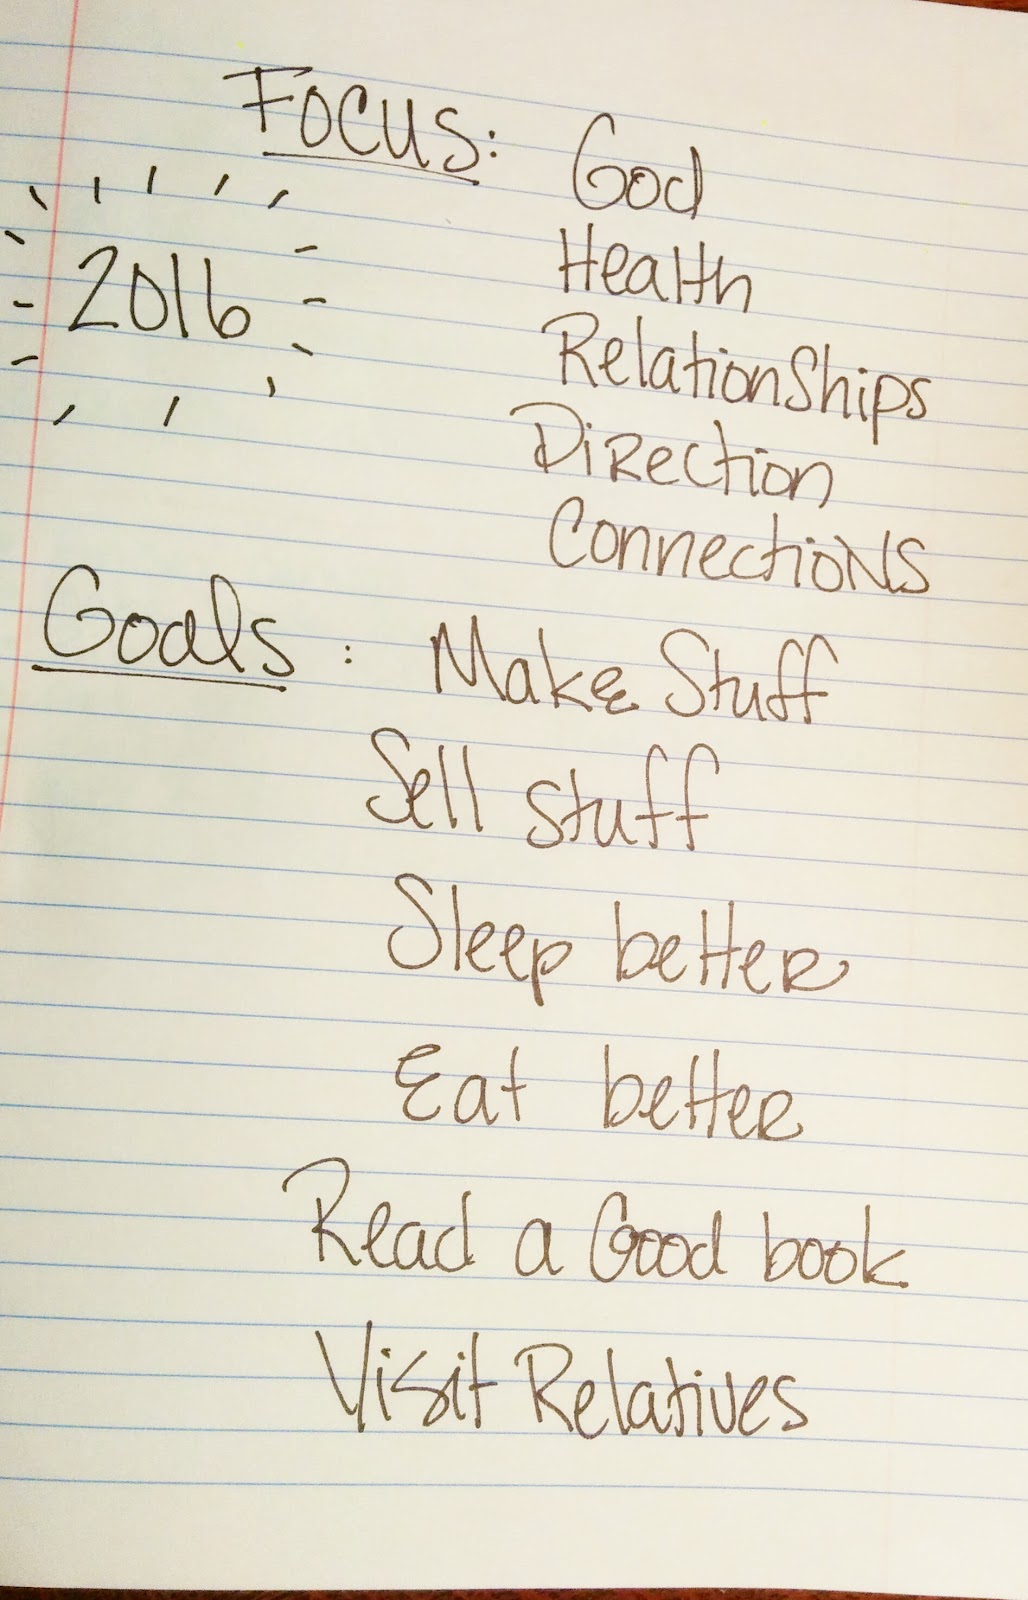 Focus: God
2016
Health
Relationships
Direction
Connections
Goals: Make Stuff
Sell stuff
Sleep better
Eat better
Read a Good book
Visit Relatives